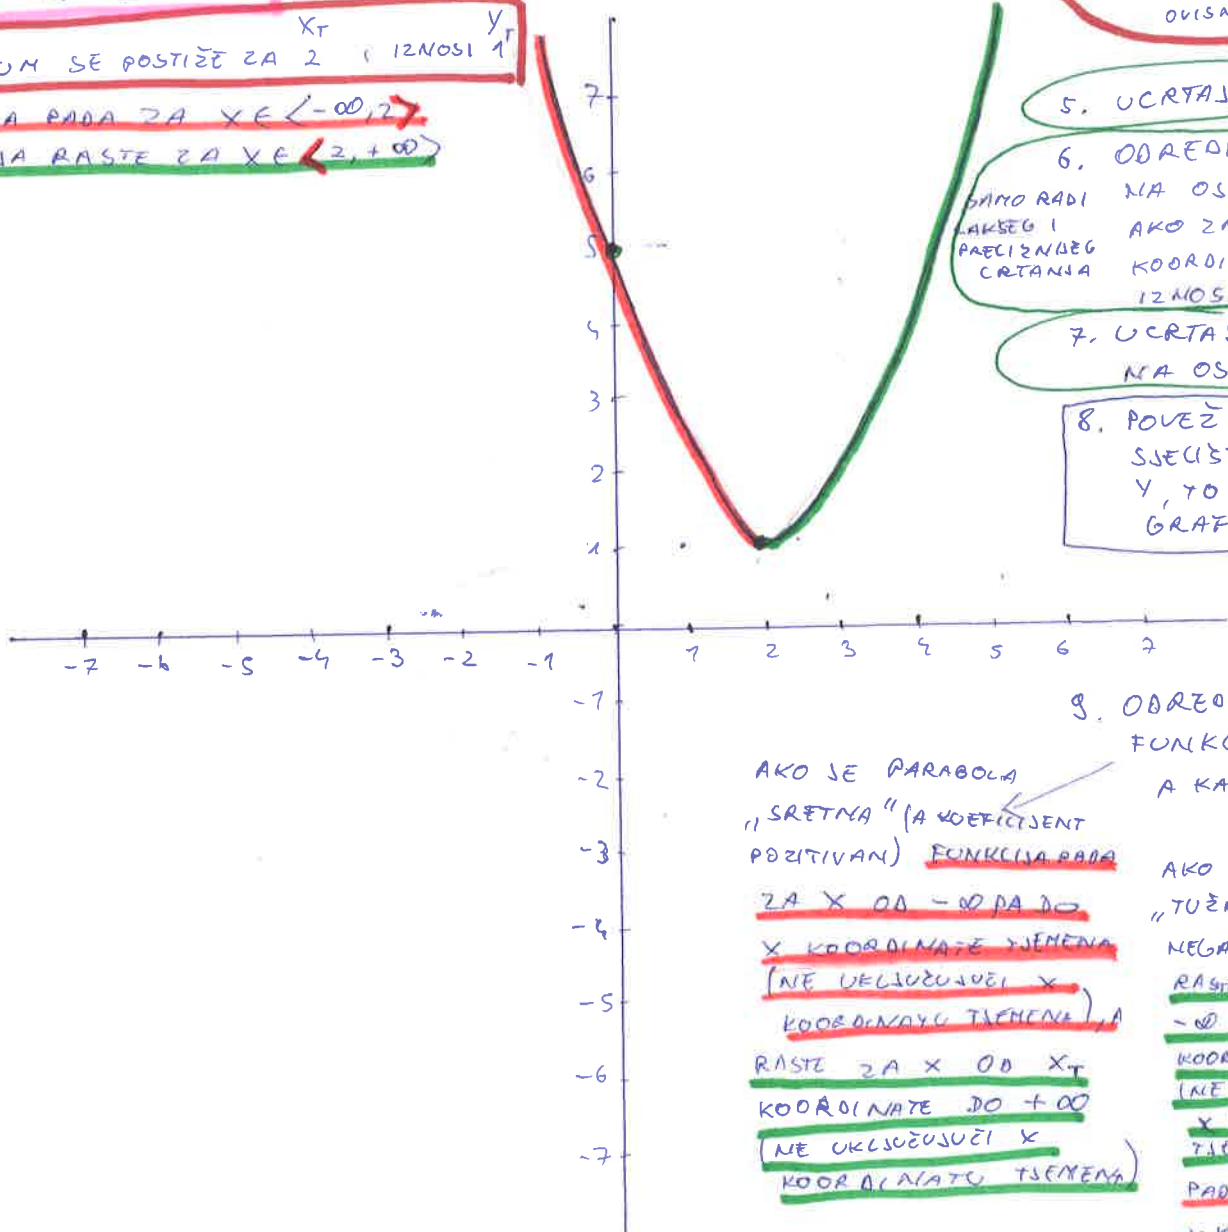 X_T Y_T
UM SE POSTIŽE ZA 2 I IZNOSI 1
A PADA ZA X ∈ <-∞, 2>
JA RASTE ZA X ∈ <2, +∞>
OVISN
5. UCRTAJ
6. ODREDI
NA OS
AKO ZA
KOORDI
IZNOS
SAMO RADI
LAKŠEG I
PRECIZNIJEG
CRTANJA
7. UCRTAJ
NA OS
8. POVEŽ
SJECIŠT
Y, TO
GRAF
7
6
5
4
3
2
1
-7 -6 -5 -4 -3 -2 -1 1 2 3 4 5 6 7
-1
-2
-3
-4
-5
-6
-7
9. ODRED
FUNKC
A KA
AKO JE PARABOLA
„SRETNA" (A KOEFICIJENT
POZITIVAN) FUNKCIJA PADA
ZA X OD -∞ PA DO
X KOORDINATE TJEMENA
(NE UKLJUČUJUĆI X
KOORDINATU TJEMENA), A
RASTE ZA X OD X_T
KOORDINATE DO +∞
(NE UKLJUČUJUĆI X
KOORDINATU TJEMENA)
AKO
„TUŽN
NEGA
RAST
-∞
KOOR
(NE
X
TJE
PAD